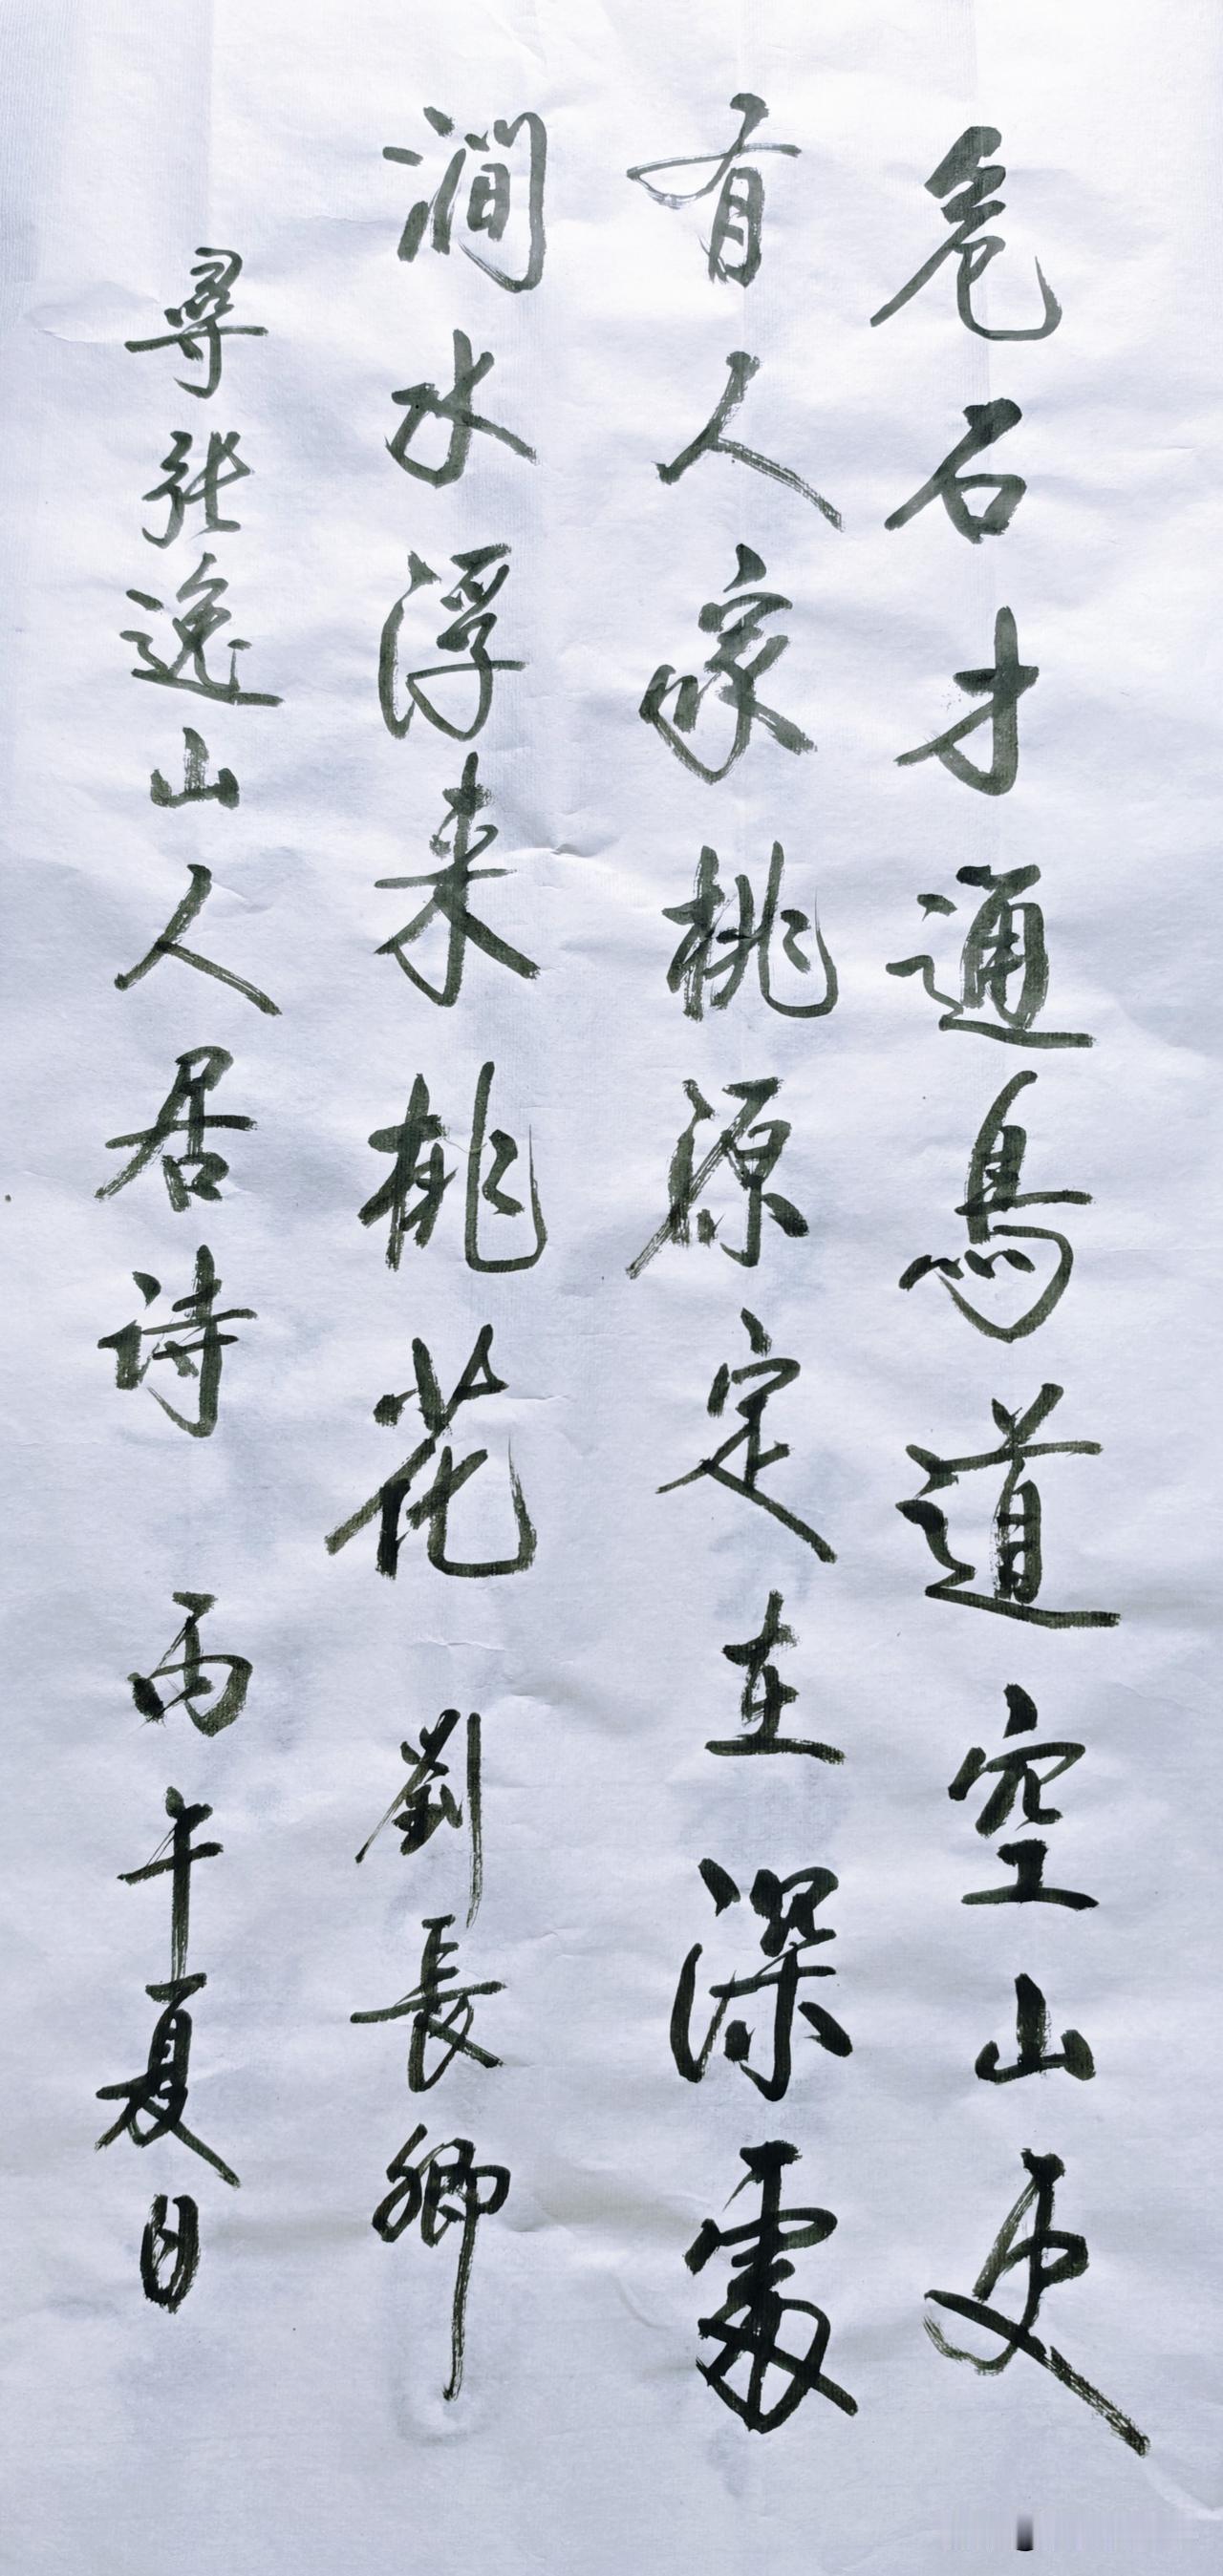 危石才通鳥道空山更
有人家桃源定在深處
澗水浮来桃花 劉長卿
尋張逸山人居诗 丙午夏日